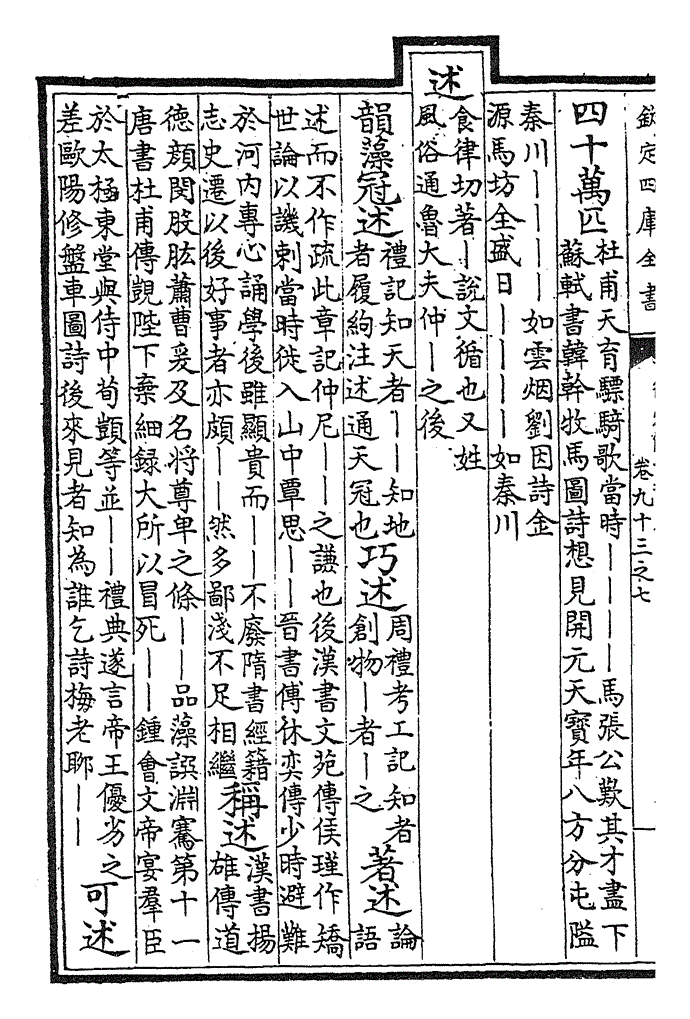 欽定四庫全書
卷九十三之七
四十萬匹
杜甫天育驃騎歌當時丨丨丨丨馬張公歎其才盡下
蘇軾書韓幹牧馬圖詩想見開元天寶年八方分屯隘
秦川丨丨丨丨如雲烟劉因詩金
源馬坊全盛日丨丨丨丨如秦川
述
食律切著丨說文循也又姓
風俗通魯大夫仲丨之後
韻藻冠述
禮記知天者丨丨知地
者履絇注述通天冠也
巧述
周禮考工記知者
創物丨者丨之
著述
論
語
述而不作疏此章記仲尼丨丨之謙也後漢書文苑傳侯瑾作矯
世論以譏刺當時徙入山中覃思丨丨晉書傅休奕傳少時避難
於河内專心誦學後雖顯貴而丨丨不廢隋書經籍
志史遷以後好事者亦頗丨丨然多鄙淺不足相繼
稱述
漢書揚
雄傳道
德顏閔股肱蕭曹爰及名將尊卑之條丨丨品藻譔淵騫第十一
唐書杜甫傳覬陛下棄細録大所以冒死丨丨鍾會文帝宴羣臣
於太極東堂與侍中荀顗等並丨丨禮典遂言帝王優劣之
差歐陽修盤車圖詩後來見者知為誰乞詩梅老聊丨丨
可述